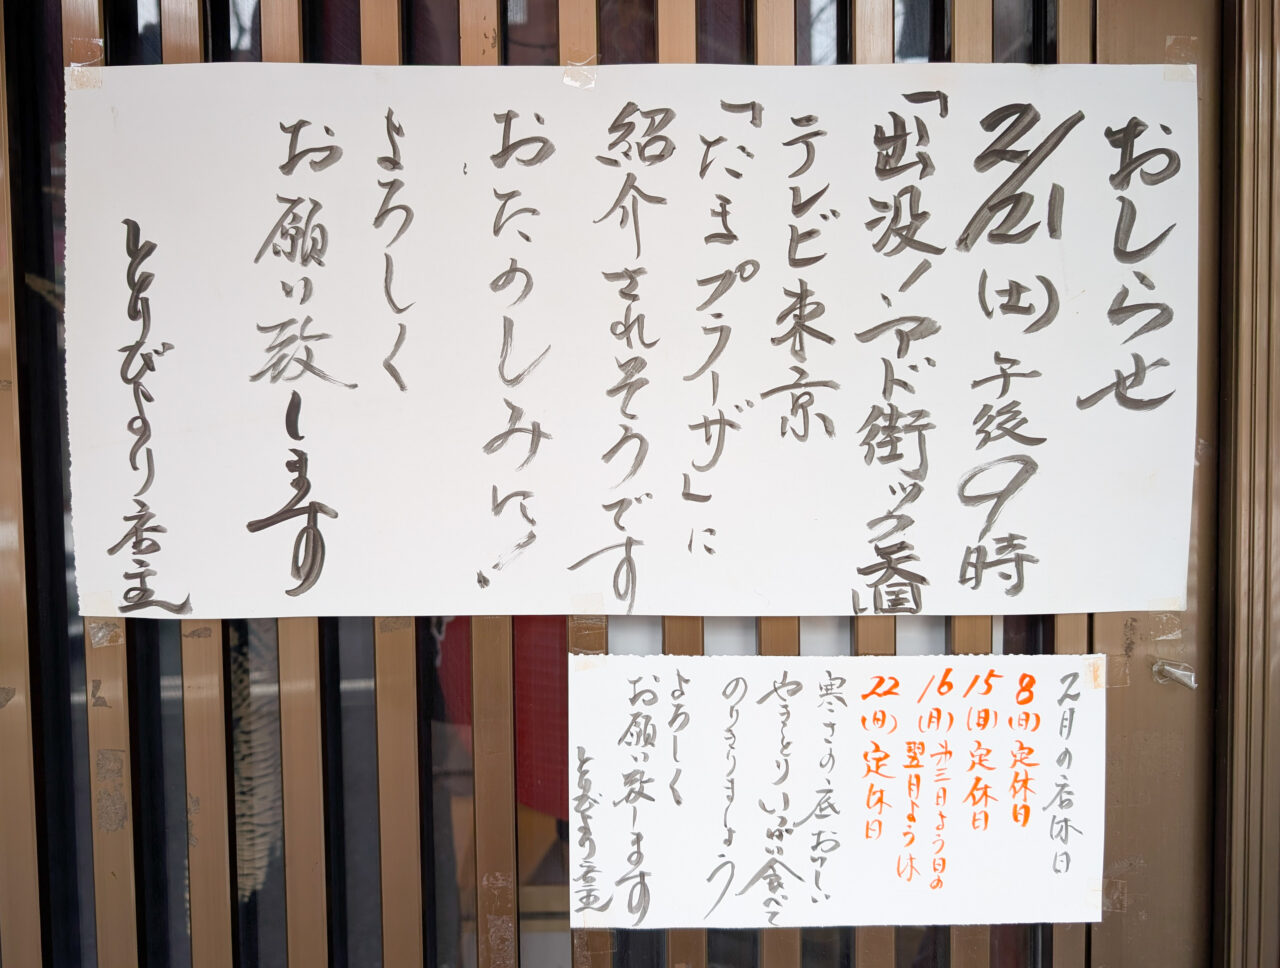 おしらせ
2/21(土)午後9時
「出没!アド街ック天国」
テレビ東京
「たまプラーザ」に
紹介されそうです
おたのしみに!
よろしく
お願い致します
とりびより店主
2月の店休日
8(日)定休日
15(日)定休日
16(月)第三日よう日の
翌月よう休
22(日)定休日
寒さの底おいしい
やきとりいっぱい食べて
のりきりましょう
よろしく
お願い致します
とりびより店主